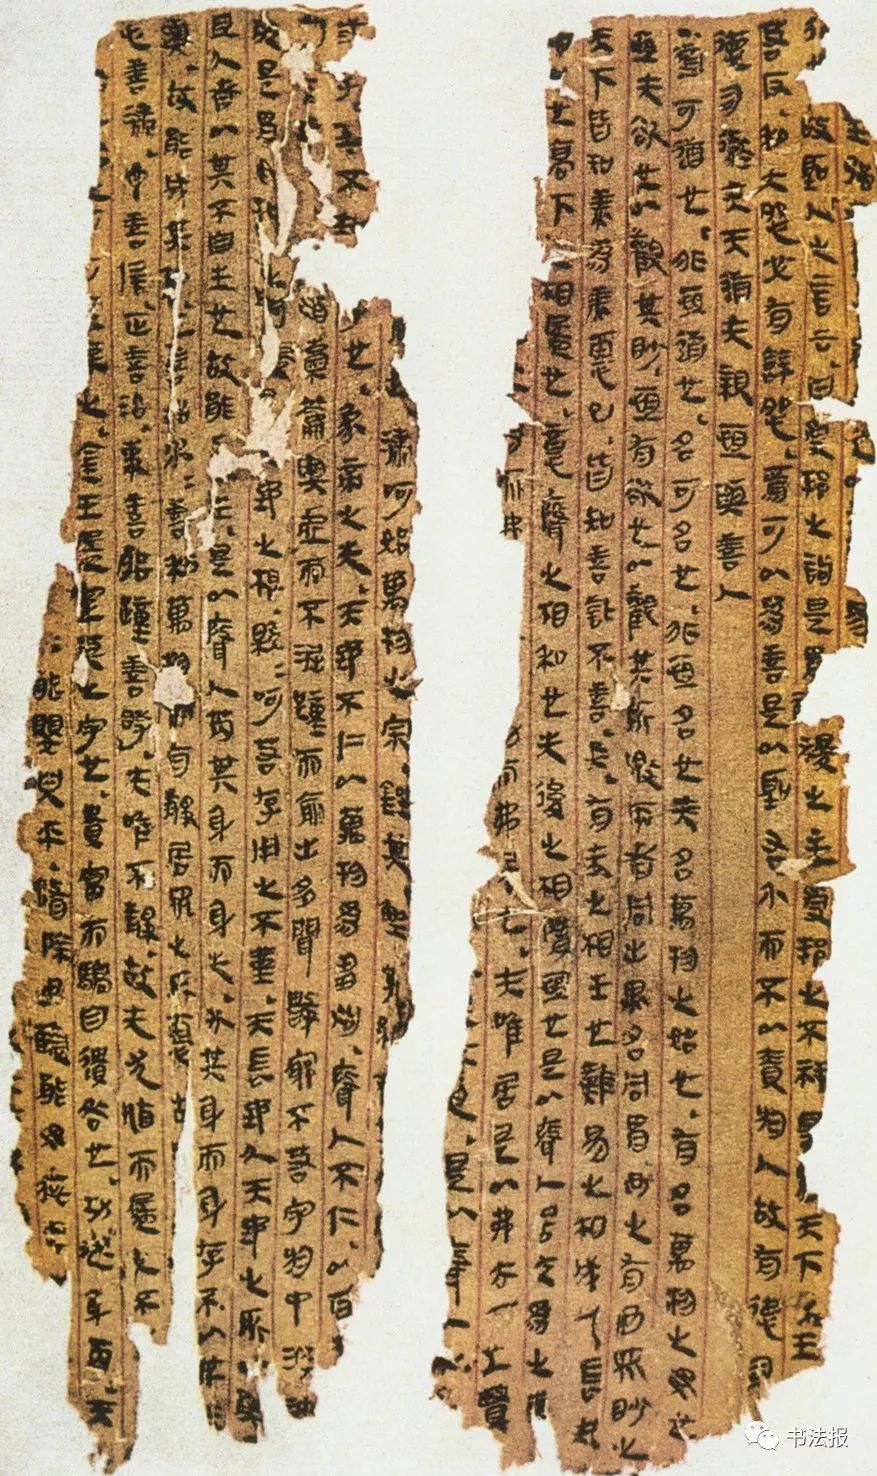 故聖人之言云曰受邦之詬是胃
稷之主受邦之不祥是胃天下之王
若反和大怨必有餘怨焉可以為善是以聖右介而不以責於人故有德司
德司徹夫天道无親恒與善人
道可道也非恒道也名可名也非恒名也无名萬物之始也有名萬物之母也
恒无欲也以觀其眇恒有欲也以觀其所噭兩者同出異名同胃玄之有玄眾眇之
天下皆知美為美惡已皆知善訾不善矣有无之相生也難易之相成也長短
之高下之相盈也意聲之相和也先後之相隋恒也是以聲人居无為之事
而弗居也夫唯居是以弗去不上賢
是以聲人
瀟呵始萬物之宗銼其解其紛
子也象帝之先天地不仁以萬物為芻狗聲人不仁以百
猶橐籥輿虛而不淈踵而俞出多聞數窮不若守於中浴神
是胃地之根緜=呵若存用之不堇天長地久天地之所以
且久者以其不自生也故能長生是以聲人芮其身而身先外其身而身存不以其无
輿故能成其私上善治水=善利萬物而有靜居眾之所惡故
心善潚予善信正善治事善能蹱善時夫唯不靜故无尤㨁而盈之不
之金玉盈室莫之守也貴富而驕自遺咎也功述身芮天
能嬰兒乎脩除玄藍能毋疵乎
书法报